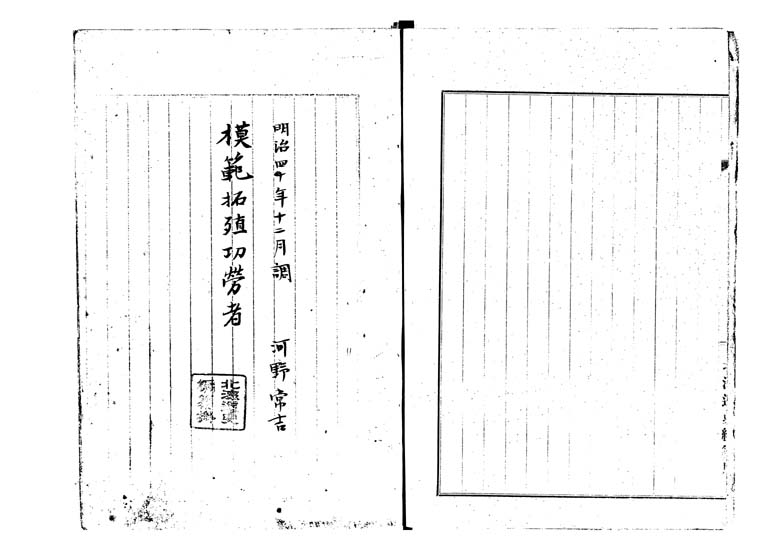 明治四十年十二月調　河野常吉
模範拓殖功労者
北海道史